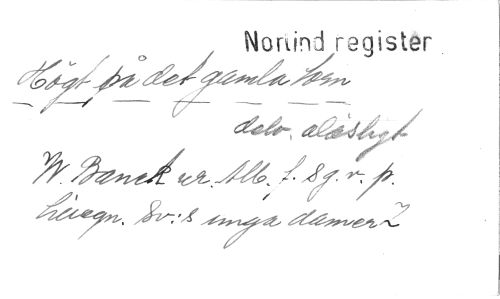 Norlind register
Högt på det gamla torn
delv. oläsligt
W. Banck ur. Alb. f. sg. v. p.
tillegn. Sv:s unga damer 2